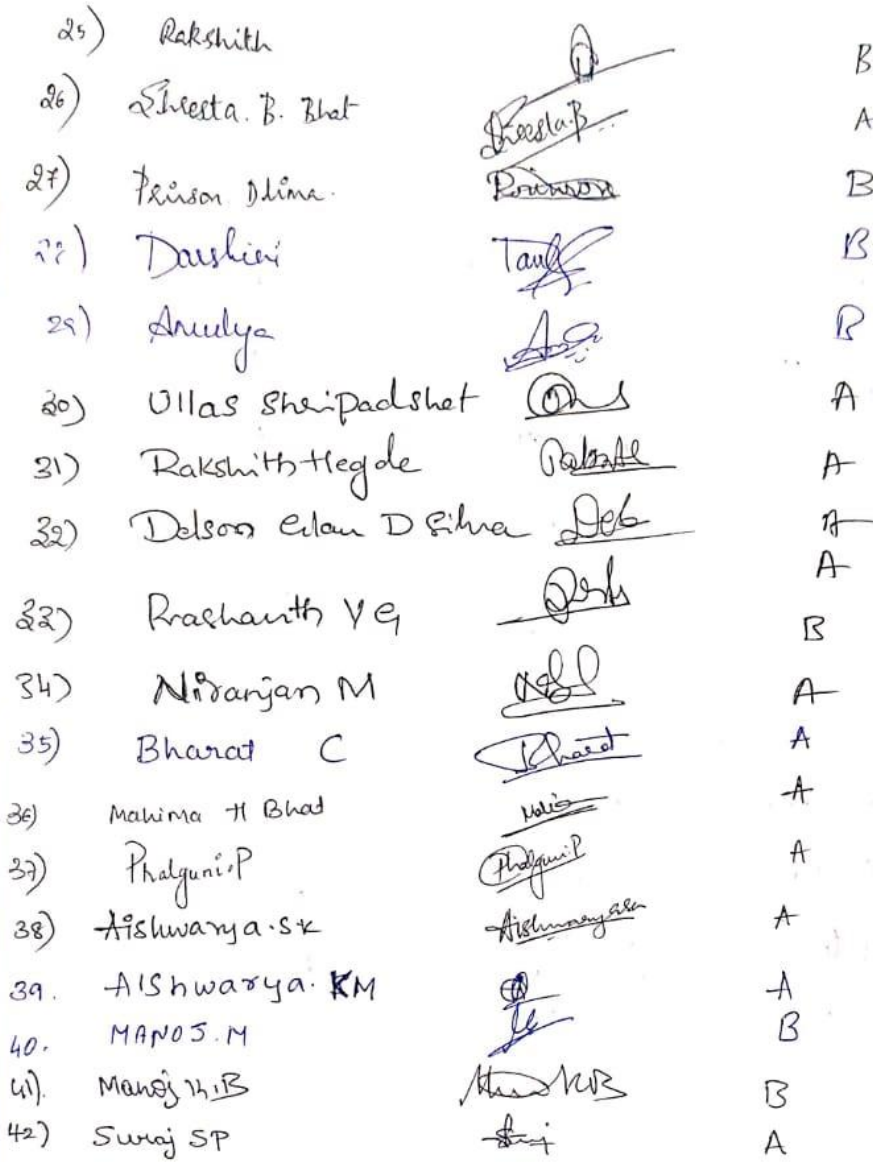 25) Rakshith B
26) Shresta. B. Bhat Shreesta.B A
27) Prinson Dlima. Prinson B
28) Darshini B
29) Amulya B
30) Ullas Shripadshet A
31) Rakshith Hegde A
32) Delson D Silva A
A
33) Prashanth V G B
34) Niranjan M A
35) Bharat C Bharat A
36) Mahima H Bhat A
37) Phalguni.P Phalguni.P A
38) Aishwarya.SK Aishwaryask A
39. AIShwarya. KM A
40. MANOJ.M B
41). Manoj K.B B
42) Suraj SP A